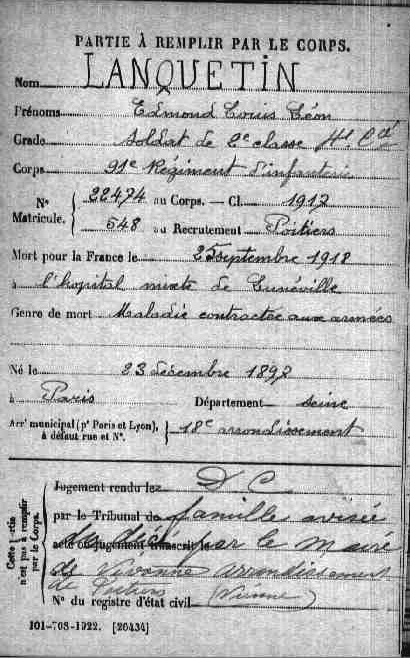 PARTIE À REMPLIR PAR LE CORPS.
Nom LANQUETIN
Prénoms Edmond Louis Léon
Grade Soldat de 2e classe
Corps 91e Régiment d'infanterie
N° Matricule. 22474 au Corps. — Cl. 1917
548 au Recrutement Poitiers
Mort pour la France le 25 septembre 1918
à l'hopital mixte de Lunéville
Genre de mort Maladie contractée aux armées
Né le 23 décembre 1897
à Paris Département seine
Arrt municipal (pr Paris et Lyon), à défaut rue et N°. 18e arrondissement
Cette partie n'est pas à remplir par le Corps.
Jugement rendu le D C
par le Tribunal de famille avisée
acte ou jugement transcrit le du décès par le maire
de Vivonne arrondissement
de Poitiers
N° du registre d'état civil (Vienne)
101-708-1922. [26434]